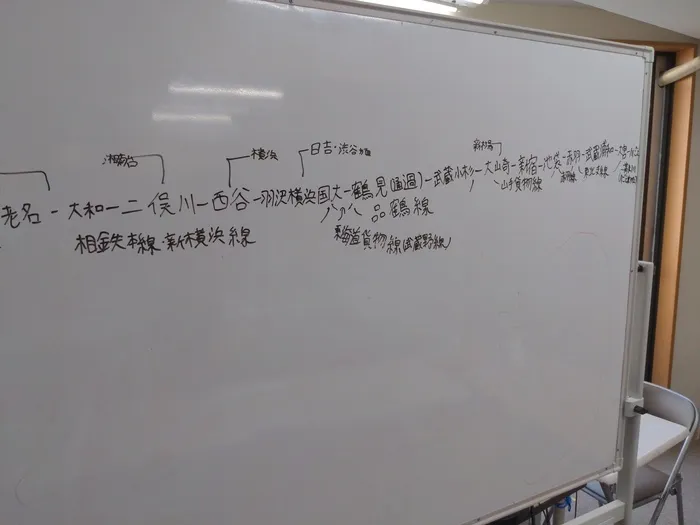 湘南台
横浜
日吉・渋谷方面
新木場
老名-大和-二俣川-西谷-羽沢横浜国大-鶴見(通過)-武蔵小杉-大崎-新宿-池袋-赤羽-武蔵浦和-大宮
品鶴線
山手貨物線
赤羽線
東北本線
相鉄本線・新横浜線
東海道貨物線(武蔵野線)